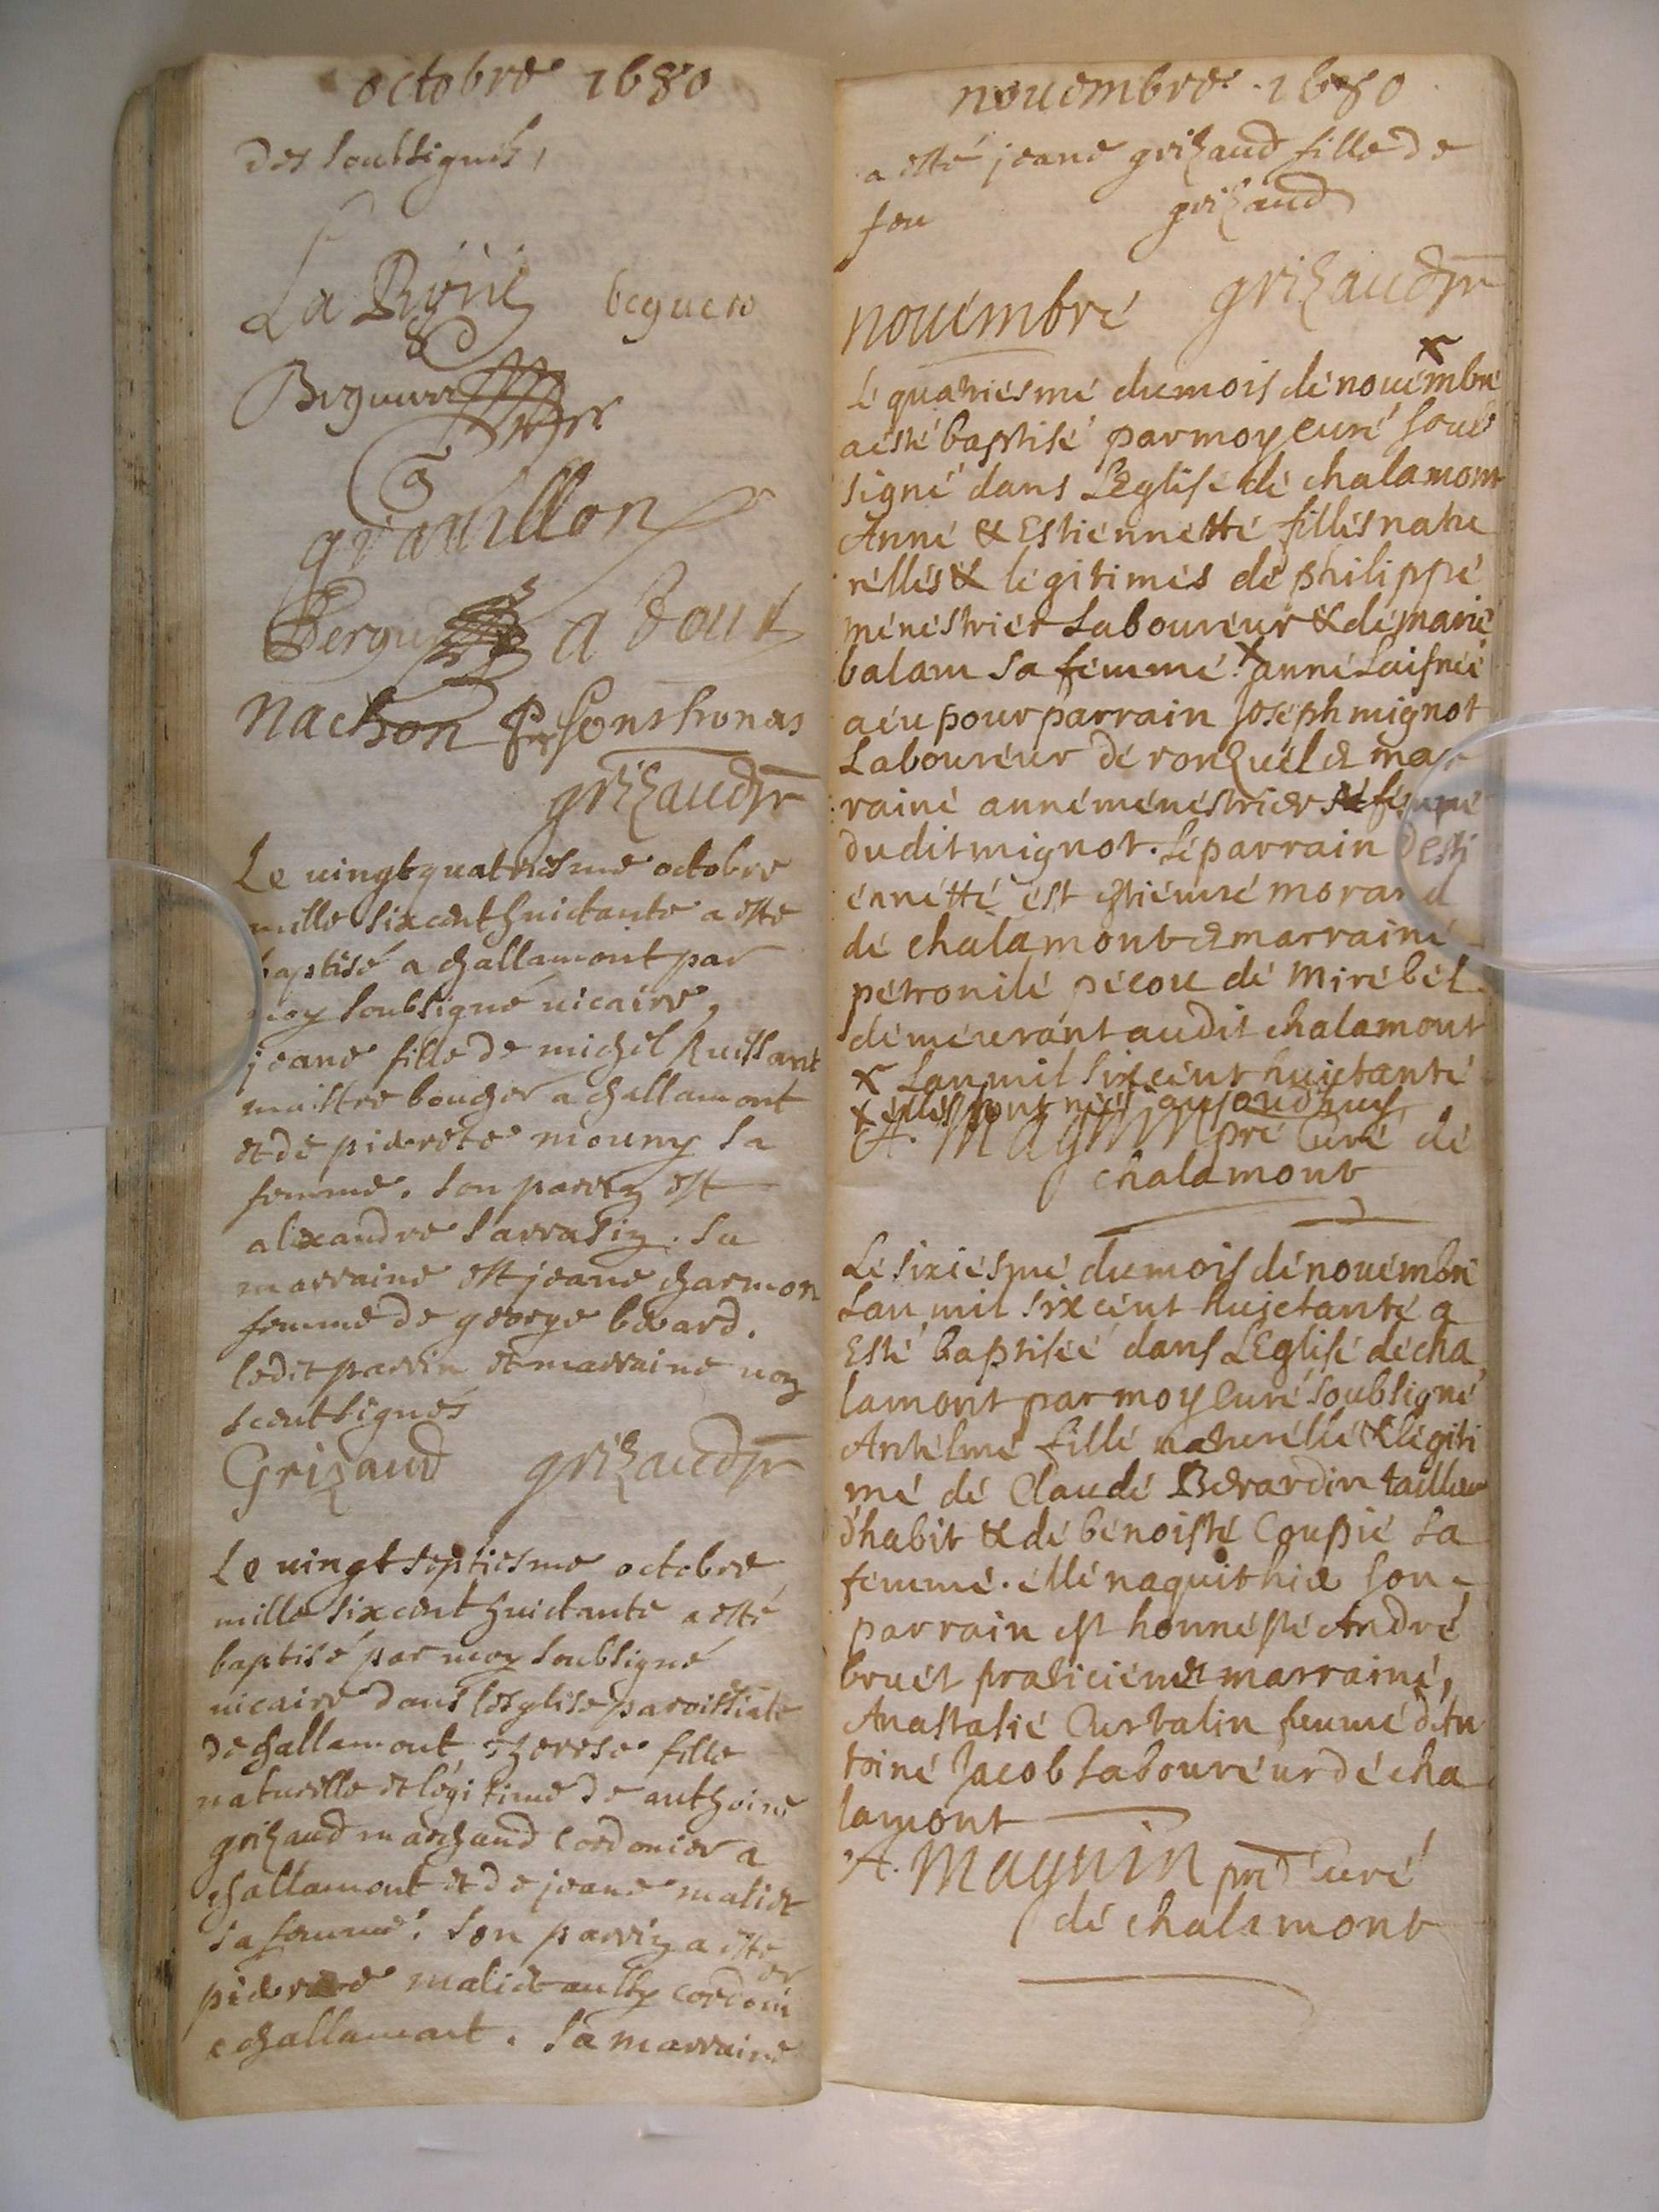 octobre 1680
des soubsignés,
La Royü beguero
Beguuer
grauillon
a Doux
Nachon Sonthonas
grizaud ptr
Le uingtquatriesme octobre
mille sixcent huictante a esté
baptisé a challamont par
moy soubsigné uicaire,
jeane fille de michel Ruissant
maistre boucher a challamont
et de pierete mouny sa
femme. son parrin est
alixandre sarrasin. sa
marraine est jeane charmon
femme de george beuard.
ledit parrin et marraine non
soubsignés
Grizaud grizaud ptr
Le uingt septiesme octobre
mille sixcent huictante a esté
baptisé par moy soubsigné
uicaire dans lesglise paroissiale
de challamont, therese fille
naturelle et légitime de anthoine
grizaud marchand cordonier a
challamont et de jeane maliet
sa femme. son parrin a esté
pierre maliet aussy cordoni
er
a challamont. sa marraine
nouembre 1680
a esté jeane grizaud fille de
feu grizaud
grizaud ptr
nouembre
Le quatriesme du mois de nouembre x
a esté baptisé par moy curé soub
signé dans L'Eglise de chalamont
Anne & Estiennette filles natu
relles & legitimes de philippe
menestrier Laboureur & de marie
balam sa femme. x anne Laisnée
a eu pour parrain Joseph mignot
Laboureur de ronzuel & mar
raine anne menestrier femme
dudit mignot. Le parrain d'esti
ennette est estienne morand
de chalamont & marraine
petronile pecou de Mirebel
demeurant audit chalamont
x Lan mil six cent huictante
x elles sont nées aujourdhuy
A. Magnin pre Curé de
chalamont
Le sixiesme du mois de nouembre
Lan mil six cent huictante a
Esté baptisée dans L'Eglise de cha
lamont par moy curé soubsigné
Antelme fille naturelle & legiti
me de Claude Berardin tailleur
d'habit & de benoiste Coupie sa
femme. elle naquit hier son
parrain est honneste André
bruet praticien & marraine,
Anastasie Curtalin femme d'An
toine Jacob Laboureur de cha
lamont
A. Magnin pre Curé
de chalamont